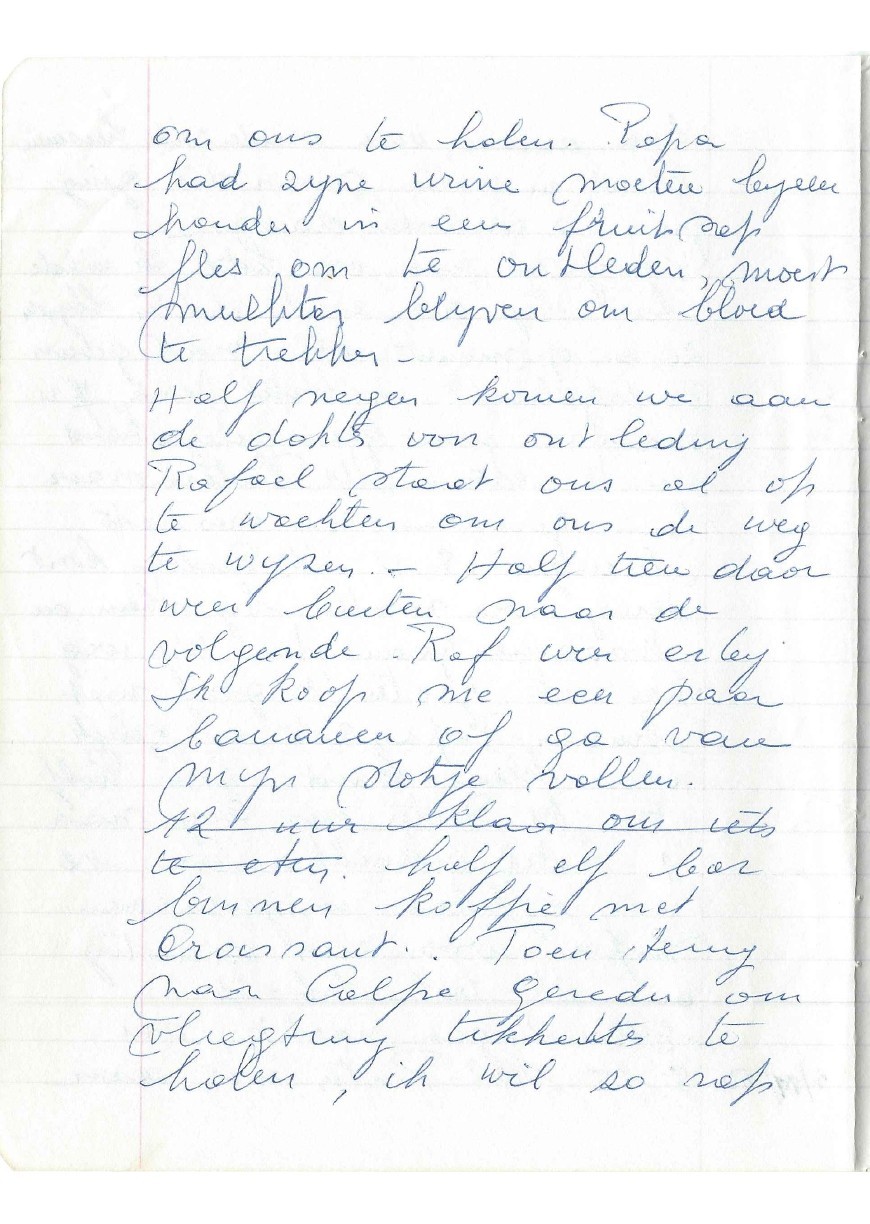 om ons te halen. Papa
had zyne urine moeten byeen
houden in een fruitsap
fles om te ontleden, moest
nuchter blyven om bloed
te trekken -
Half negen komen we aan
de dokter von ontleding
Rafael staat ons al op
te wachten om ons de weg
te wyzen. - Half tien daar
weer buiten naar de
volgende Raf weer erby
Ik koop me een paar
bananen of ga van
myn stokje vallen.
12 uur klaar om iets
te eten. half elf bar
binnen koffie met
Croissant. Toen terug
naar Calpe gereden om
vliegtuig tikkets te
halen, ik wil so rap